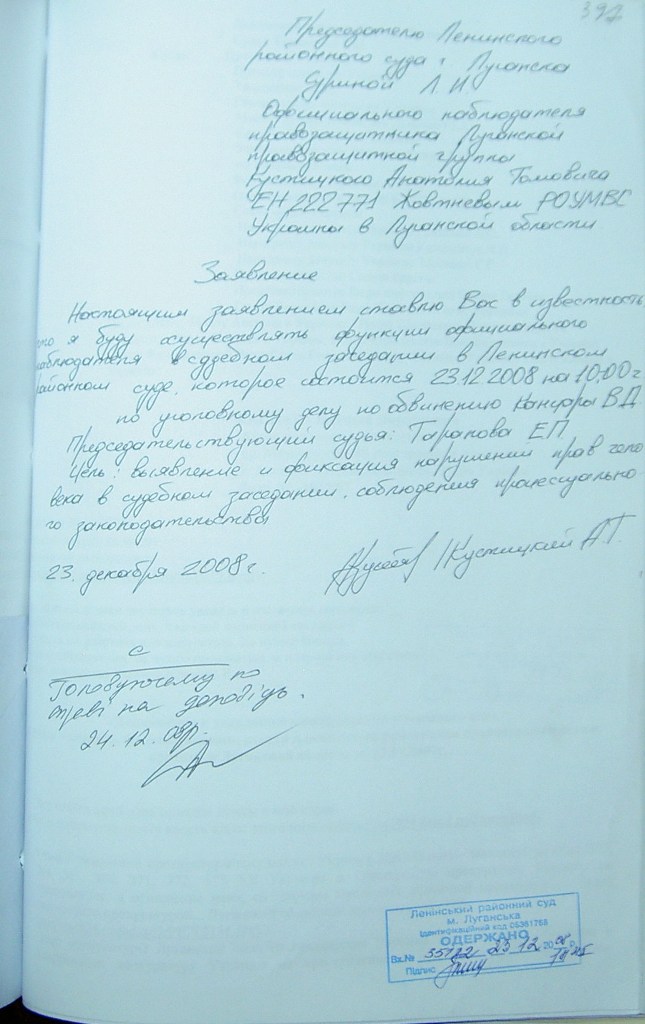 397
Председателю Ленинского
районного суда г. Луганска
Суриной Л.И.
Официального наблюдателя
правозащитника Луганской
правозащитной группы
Кустицкого Анатолия Томовича
ЕН 222771 Жовтневым РОУМВС
Украины в Луганской области
Заявление
Настоящим заявлением ставлю Вас в известность
что я буду осуществлять функции официального
наблюдателя в судебном заседании в Ленинском
районном суде, которое состоится 23.12.2008 на 10.00 г
по уголовному делу по обвинению В.Д.
Председательствующий судья: Тарапова Е.П.
Цель: выявление и фиксация нарушений прав чело
века в судебном заседании, соблюдения процессуально-
го законодательства
23. декабря 2008 г. Кустицкий А.Т.
с
Головуючему по
справі на доповідь.
24.12.08р.
Ленінський районний суд
м. Луганська
Ідентифікаційний код 05381768
ОДЕРЖАНО
Вх.№ 35122 23 12 2008 р.
Підпис